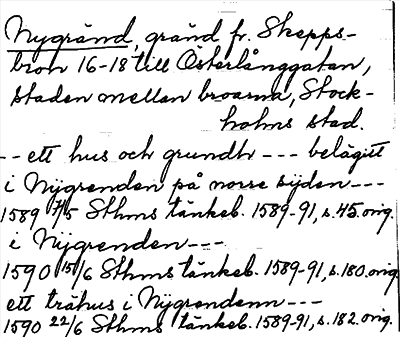 Nygränd, gränd fr. Skepps-
bron 16-18 till Österlånggatan,
staden mellan broarna, Stock-
holms stad.
-- ett hus och grundh --- belägitt
i Nÿgrenden på norre sijden ---
1589 14/5 Sthms tänkeb. 1589-91, s. 45. orig.
i Nÿgrenden ---
1590 15/6 Sthms tänkeb. 1589-91, s. 180. orig.
ett trähus i Nÿgrendenn ---
1590 22/6 Sthms tänkeb. 1589-91, s. 182. orig.